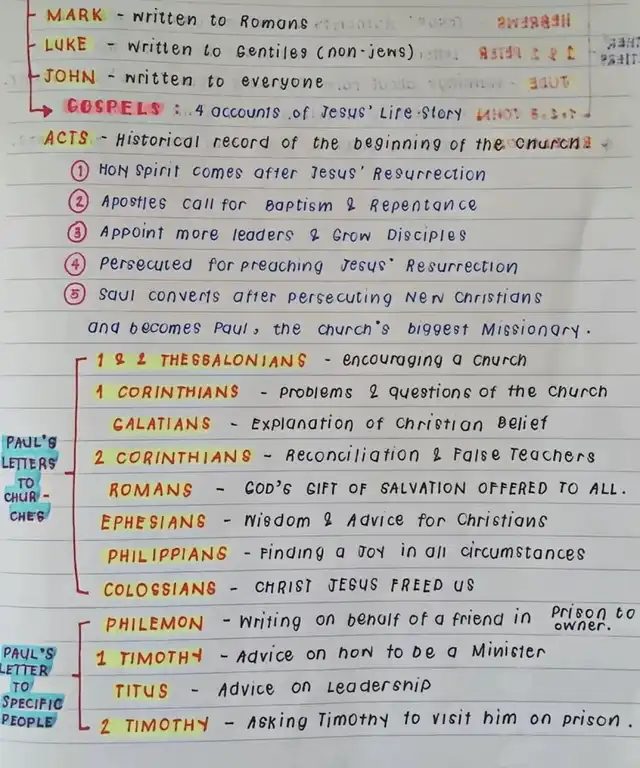 MARK - written to Romans
LUKE - written to Gentiles (non-jews)
JOHN - written to everyone
GOSPELS : 4 accounts of Jesus' Life Story
ACTS - Historical record of the beginning of the church
1 Holy Spirit comes after Jesus' Resurrection
2 Apostles call for Baptism & Repentance
3 Appoint more leaders & Grow Disciples
4 Persecuted for preaching Jesus' Resurrection
5 Saul converts after persecuting New Christians
and becomes Paul, the church's biggest Missionary.
PAUL'S LETTERS TO CHUR-CHES
1 & 2 THESSALONIANS - encouraging a church
1 CORINTHIANS - problems & questions of the church
GALATIANS - Explanation of Christian Belief
2 CORINTHIANS - Reconciliation & False Teachers
ROMANS - GOD'S GIFT OF SALVATION OFFERED TO ALL.
EPHESIANS - Wisdom & Advice for Christians
PHILIPPIANS - Finding a Joy in all circumstances
COLOSSIANS - CHRIST JESUS FREED US
PAUL'S LETTER TO SPECIFIC PEOPLE
PHILEMON - Writing on behalf of a friend in Prison to owner.
1 TIMOTHY - Advice on how to be a Minister
TITUS - Advice on Leadership
2 TIMOTHY - Asking Timothy to visit him on prison.